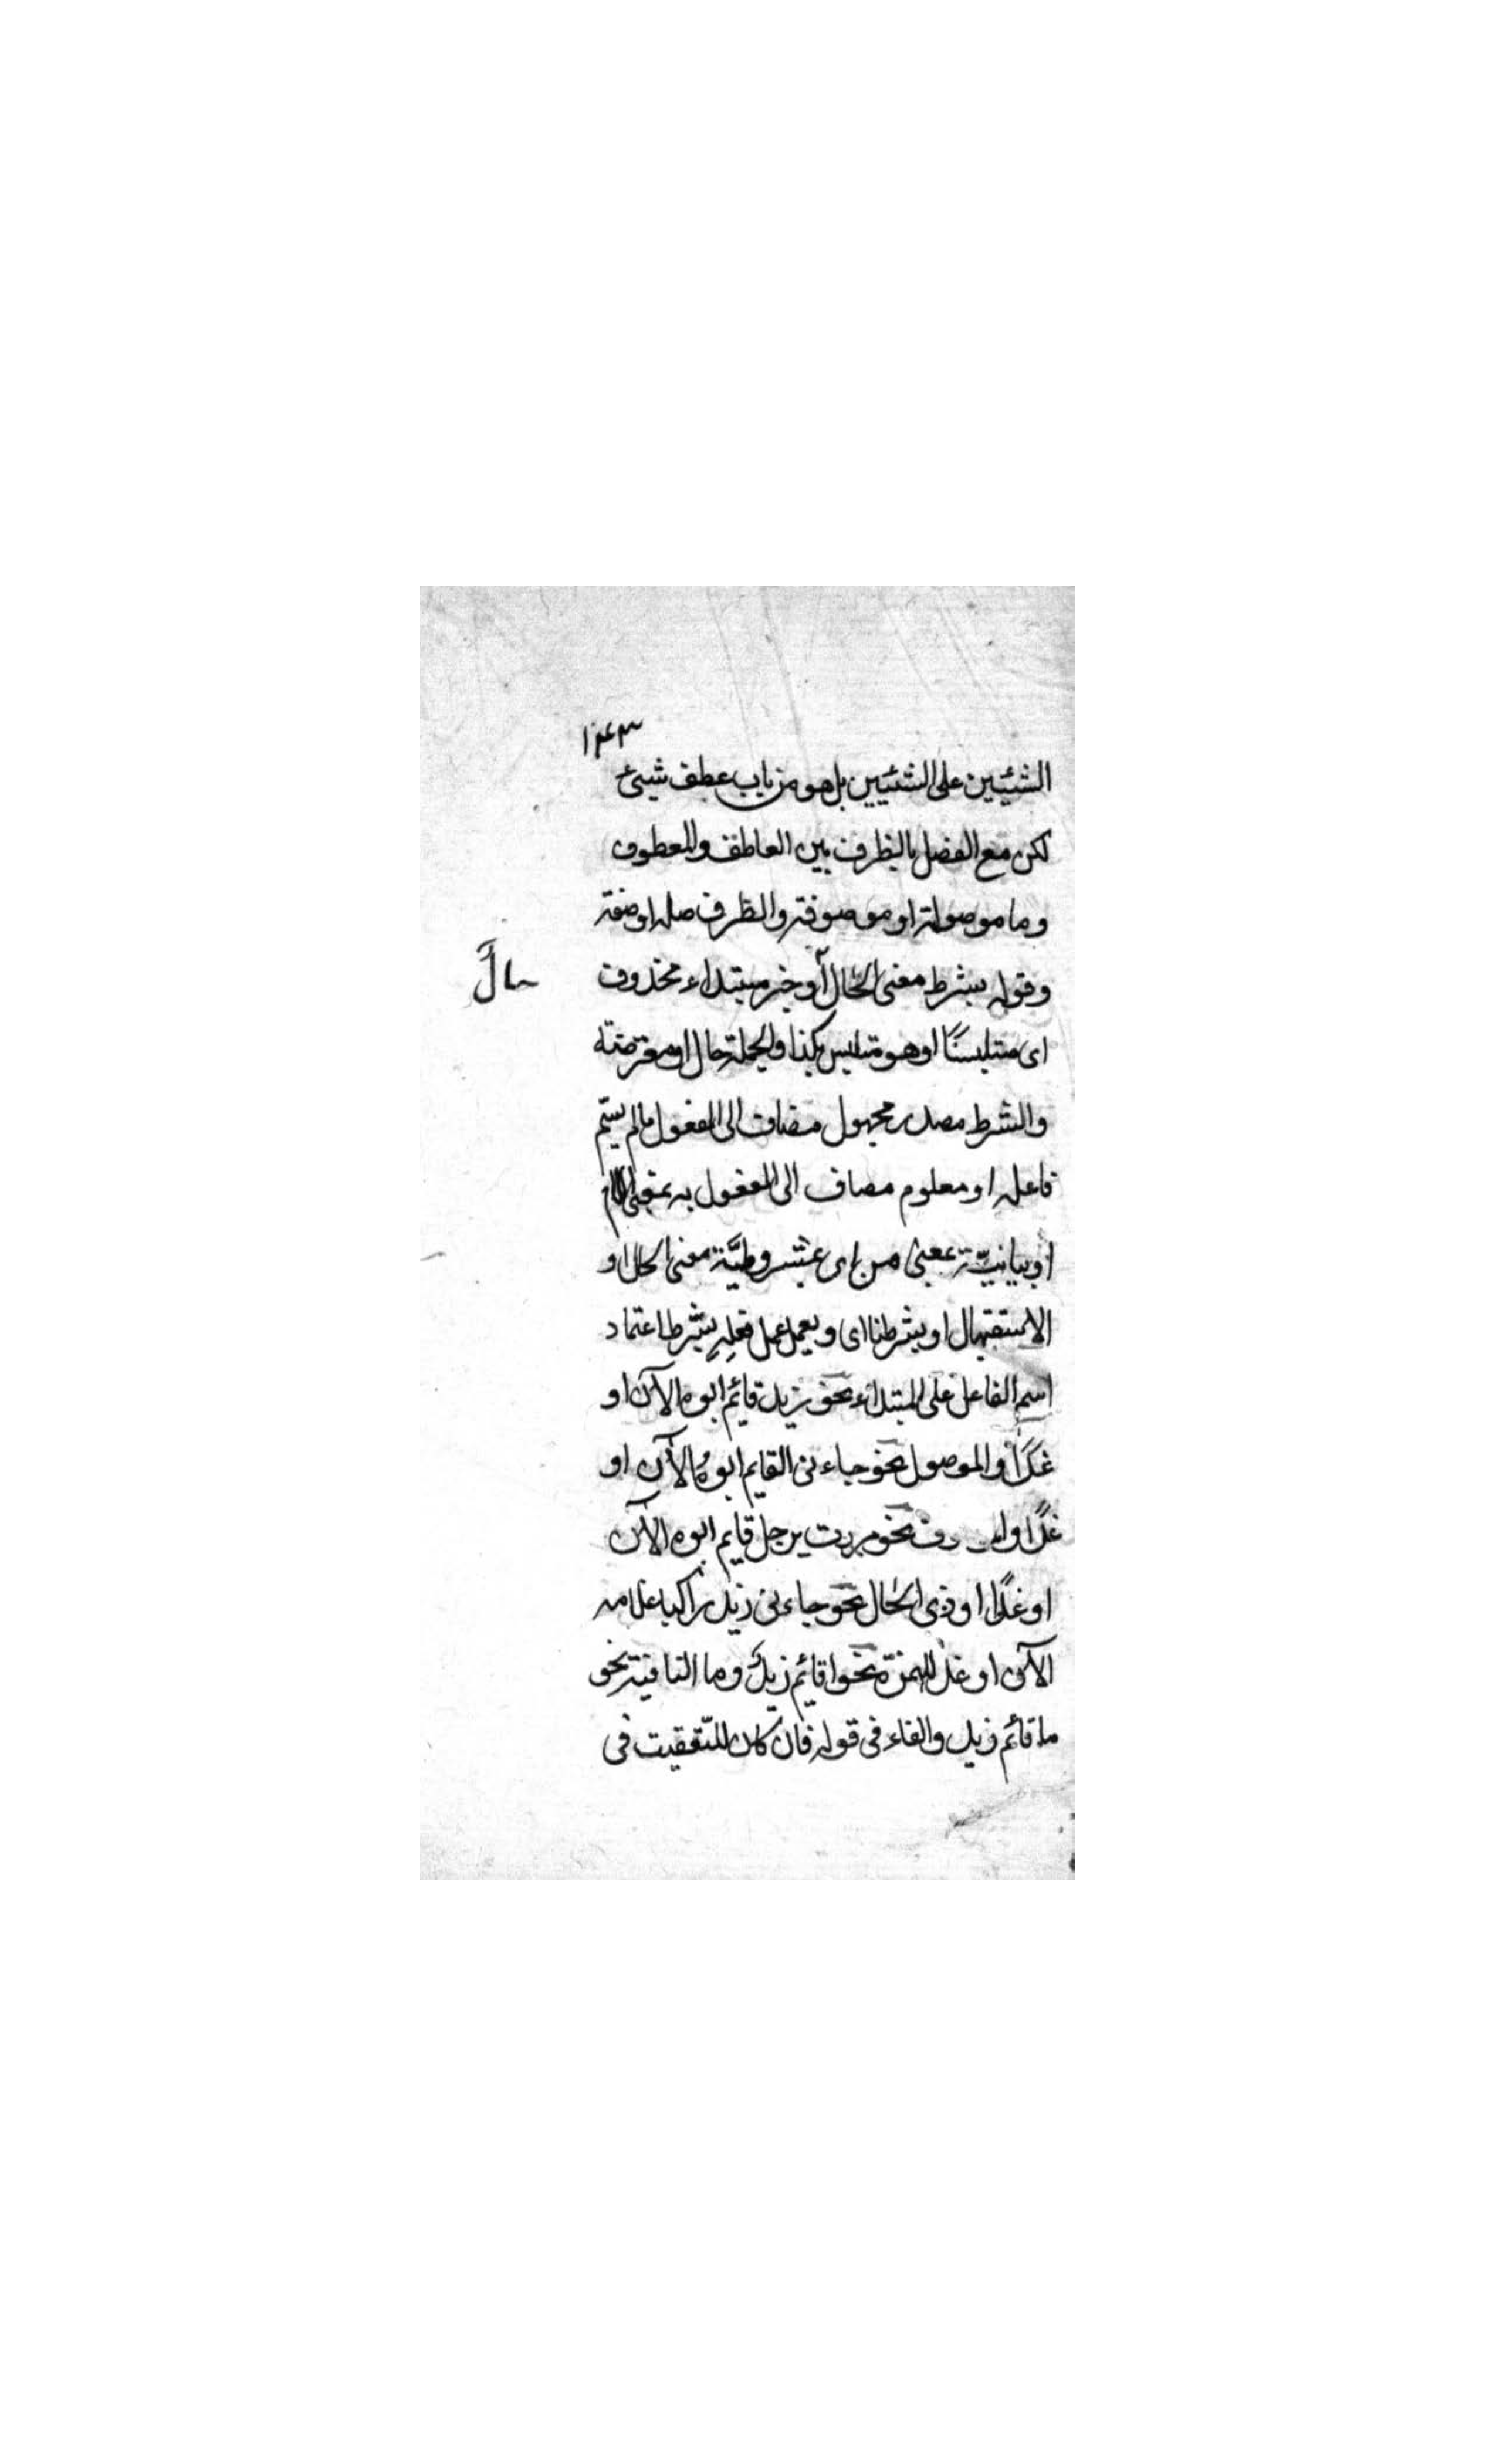 الشيئين على الشيئين بل هو من باب عطف شيئ
لكن مع الفصل بالظرف بين العاطف والمعطوف
وما موصولة او موصوفة والظرف صله او صفة
وقوله بشرط معنى الحال أو خبر مبتداء محذوف
حالٌ
اى متلبسًا او هو متلبس بكذا والجملة حال او معترضة
والشرط مصدر مجهول مضاف الى المفعول مالم يسمّ
فاعله او معلوم مضاف الى المفعول به بمعنى اللام
او بيانيّة بمعنى من اى بمشروطيَّة معنى الحال او
الاستقبال او بشرطنا اى ويعمل عمل فعلِهِ بشرط اعتماد
اسم الفاعل على المبتداء نحو زيد قائم ابوه الآن او
غدًا والموصول نحو جاءنى القايم ابوهُ الآن او
غدًا او نحو مررت برجل قايم ابوه الآن
او غدًا او ذى الحال نحو جاءنى زيد راكبا غلامه
الآن او غدا للهمزة نحو اقائم زيدٌ وما النافية نحو
ما قائم زيد والفاء فى قوله فان كان للتعقيب فى